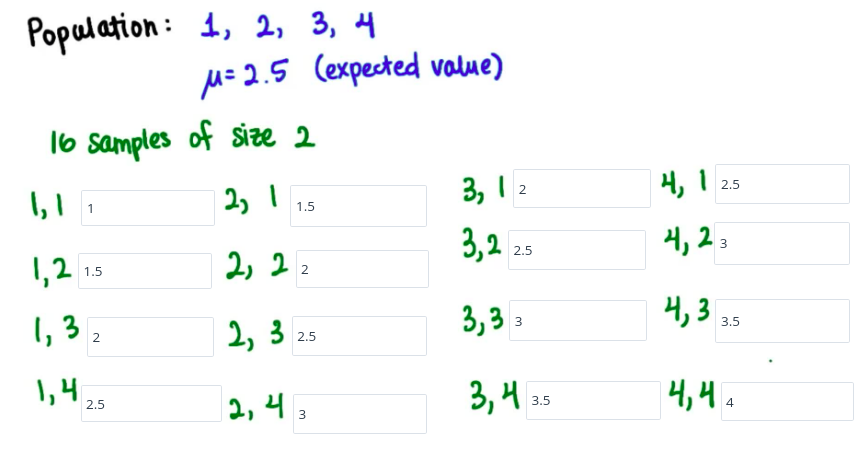 Population: 1, 2, 3, 4
μ= 2.5 (expected value)
16 samples of size 2
1,1 1 2, 1 1.5 3, 1 2 4, 1 2.5
1,2 1.5 2, 2 2 3,2 2.5 4, 2 3
1, 3 2 2, 3 2.5 3,3 3 4,3 3.5
1,4 2.5 2, 4 3 3,4 3.5 4,4 4